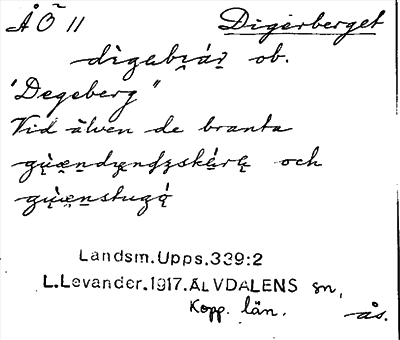 ÅÖ 11 Digerberget
digabi̯ár̥ ob.
"Degeberg"
Vid älven de branta
och
Landsm.Upps.339:2
L.Levander.1917.ÄLVDALENS sn,
Kopp. län.
-ås.